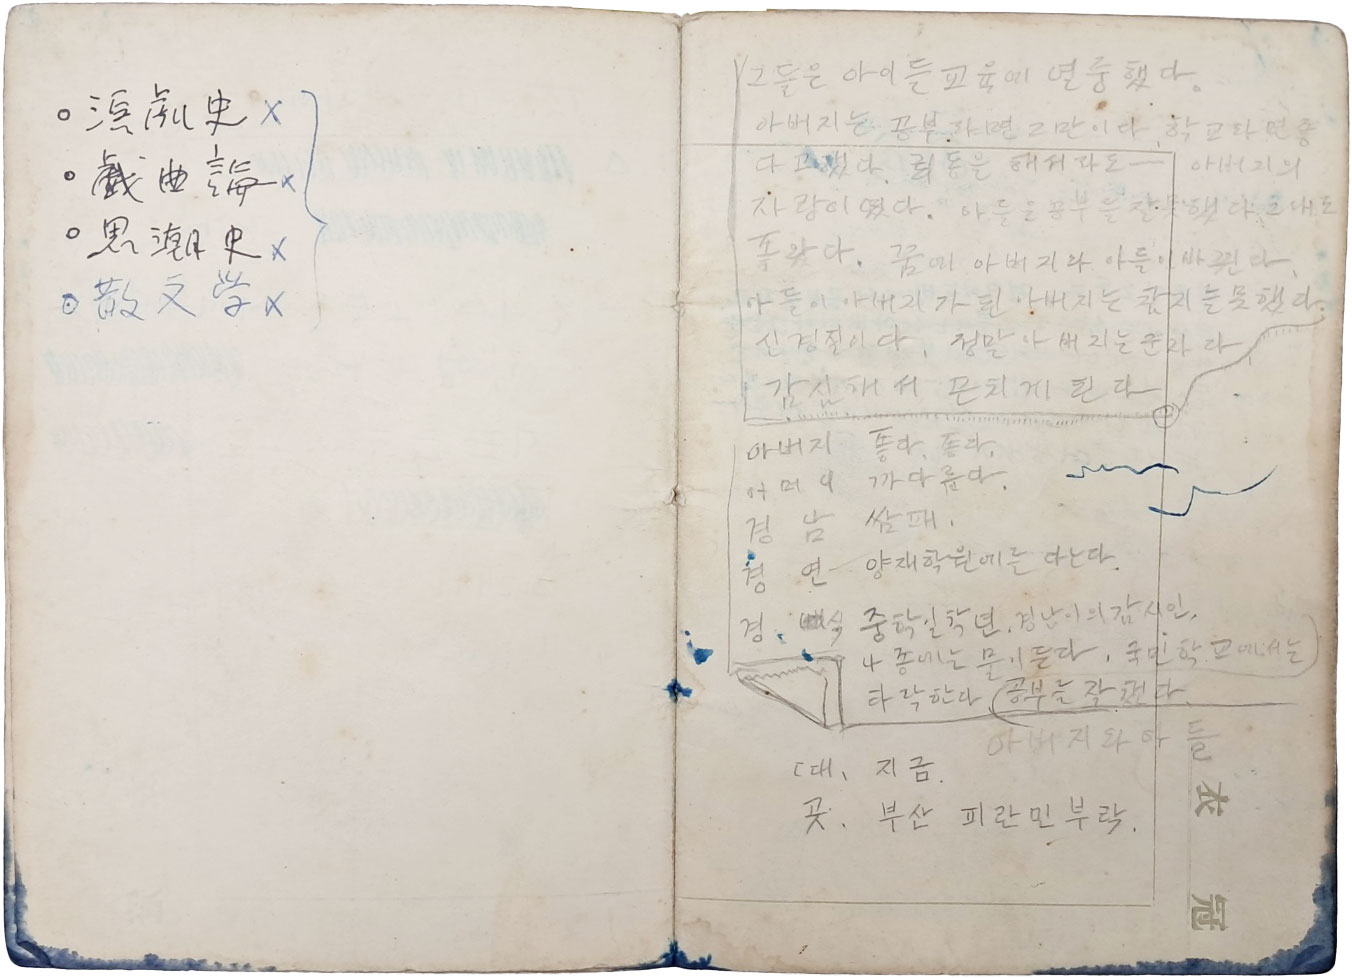 ○ 演劇史 ×
○ 戱曲論 ×
○ 思潮史 ×
○ 散文学 ×
그들은 아이들 교육에 열중했다.
아버지는 공부라면 그만이다. 학교라면
해서라도 — 아버지의
자랑이였다. 아들은 공부를 잘 못했다. 그래도
좋왔다. 꿈에 아버지와 아들이 바뀐다.
아들이 아버지가 된 아버지는 참지를 못했다.
신경질이다. 정말 아버지는
감심해서 문치게 된다
아버지 좋다. 좋다.
어머니 까다롭다.
경남 쌈패.
경연 양재학원에를 다는다.
경식 중학일학년. 경남이의 감시인.
나종에는 물이 든다. 국민학교에서는
타락한다 공부를 잘했다.
아버지와 아들
때. 지금.
곳. 부산 피란민부락.
衣
冠